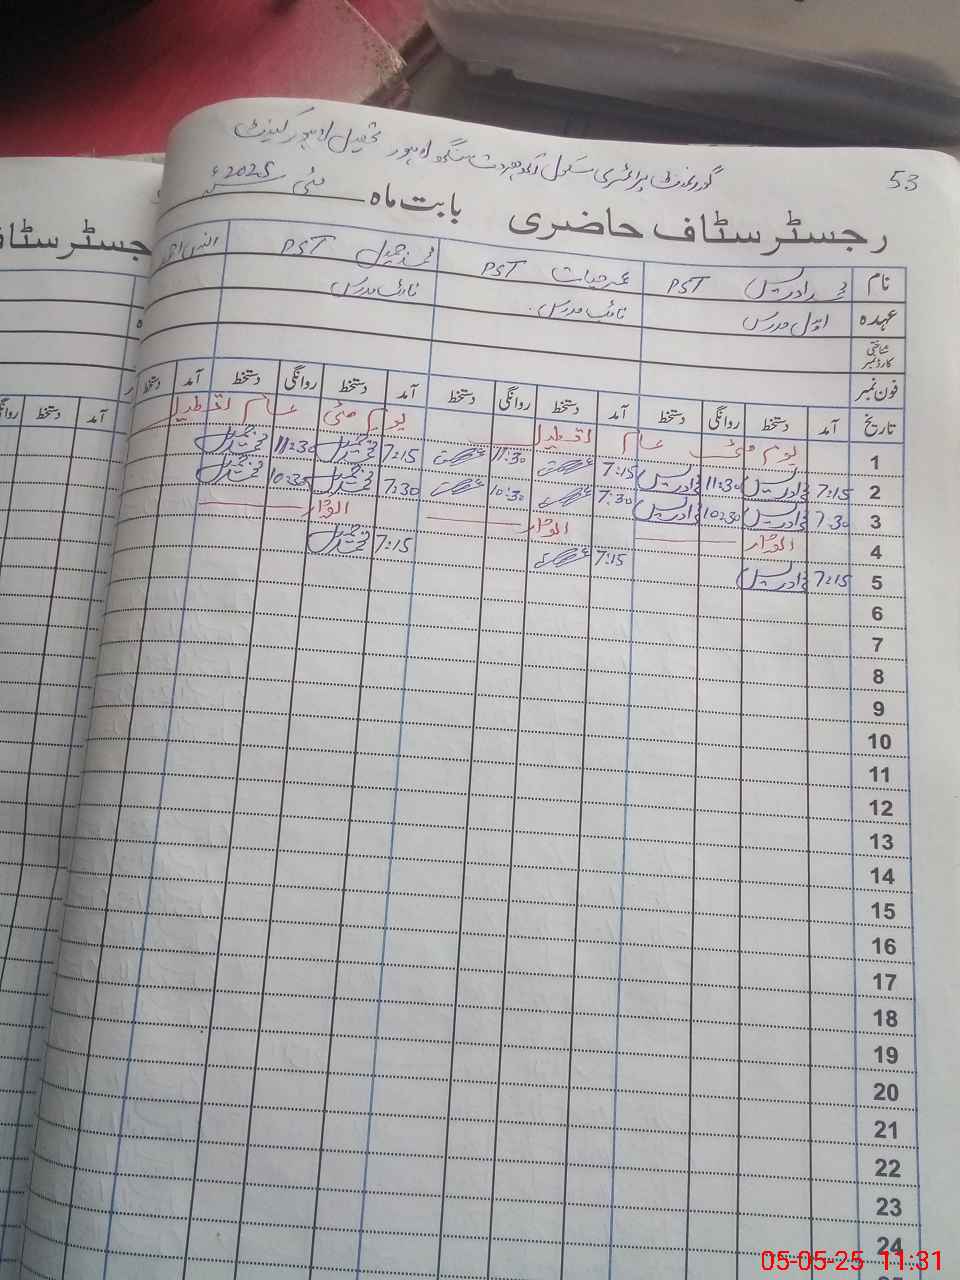 53
گورنمنٹ پرائمری سکول سنگھ لاہور تحصیل لاہور کینٹ
رجسٹر سٹاف حاضری بابت ماہ مئی 2025ء
رجسٹر سٹاف
نام ادریس PST عمر حیات PST محمد جمیل PST
عہدہ اول مدرس نائب مدرس نائب مدرس
شناختی کارڈ نمبر
فون نمبر
تاریخ آمد دستخط روانگی دستخط آمد دستخط روانگی دستخط آمد دستخط روانگی دستخط آمد دستخط
آمد دستخط روانگی
1 یوم مئی عام تعطیل یوم مئی عام تعطیل
2 7:15 11:30 7:15 11:30 7:15 11:30
3 7:30 10:30 7:30 10:30 7:30 10:30
4 اتوار اتوار اتوار
5 7:15 7:15 7:15
6
7
8
9
10
11
12
13
14
15
16
17
18
19
20
21
22
23
24
05-05-25 11:31